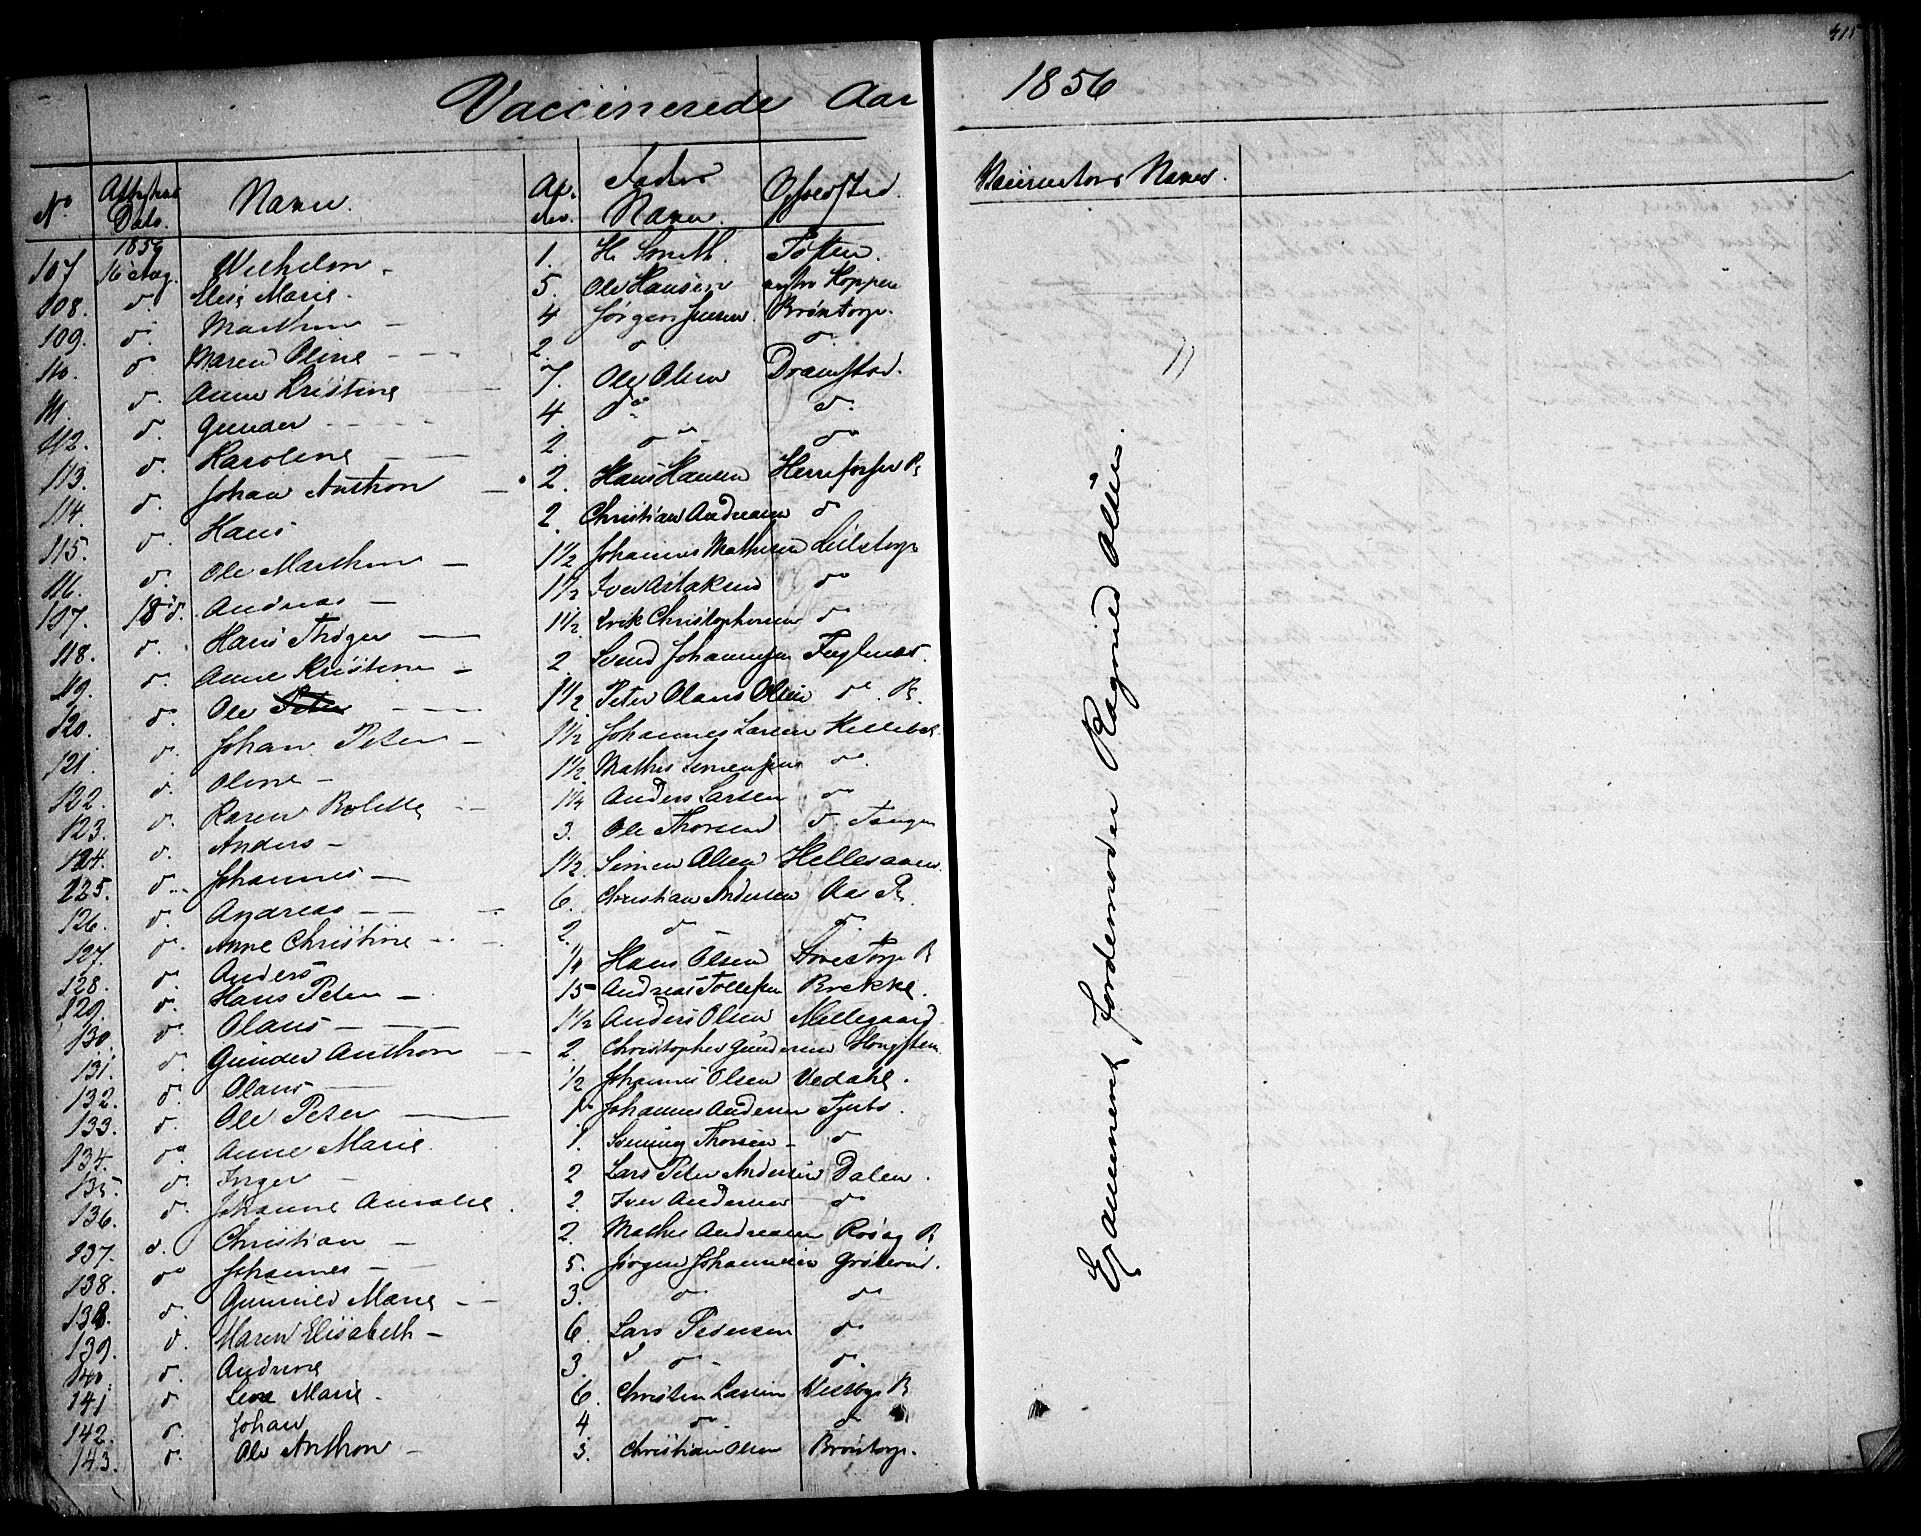 415
Vaccinerede Aar 1856
No Attestens Dato. Navn. Al- der. Faders Navn. Opholdsted. Vaccinators Navn.
1856
107 16 Aug. Wilhelm 1. H. Smith. Toften.
108. do. Elise Marie. 5. Ole Hansen Hoppen
109. do. Marthin 4 Jørgen Jensen Brøntorp.
110. do Maren Oline 2. do. do.
111. do. Anne Kristine 7. Ole Olsen Dramstad.
112. do. Gunder 4. do do.
113. do. Karoline 2. do do
114. do. Johan Anthon 2. Hans Hansen Herrefosser
115. do. Hans 2. Christian Andreasen do
116. do. Ole Marthin 1 1/2 Johannes Mathisen Lilletorp
117. 18 do. Andreas 1 1/2 Iver Aslaksen do
118. do. Hans Thøger 1 1/2 Erik Christophersen do
119. do. Anne Kristine 2 Svend Johannesen Fuglenes.
120. do. Ole Peter 1 1/2 Peter Olaus Olsen do. R.
121. do. Johan Peter 1 1/2 Johannes Larsen Hellebek
122. do. Oline 1 1/2 Mathis Simensen do.
123. do. Karen Bolette 1 1/4 Anders Larsen do
124. do. Anders 3. Ole Thorsen do. Tangen
125. do. Johannes 1 1/2 Simen Olsen Hellesaaen
126. do. Andreas 6. Christian Andersen Aa R.
127. do. Anne Christine 2. do do.
128. do. Anders 1/4 Hans Olsen Store Torp R
129. do. Hans Peter 15 Andreas Tollefsen Brekke.
130. do Olaus 1 1/2 Anders Olsen Mellegaard
131. do. Gunder Anthon 2. Christopher Gundersen Hougsteen
132. do. Olaus 1/2 Johannes Olsen Vedahl.
133. do. Ole Peter 1. Johannes Andersen Tjerbo.
134. do Anne Marie 1. Svening Thorsen do
135. do. Inger 2 Lars Peter Andersen Dalen.
136. do. Johanne Amalie 2. Iver Andersen do
137. do. Christian 2. Mathis Andreasen Røsæg R
138. do Johannes 5. Jørgen Johannesen Grøterud.
138. do. Gunnild Marie 3. do do
139. do. Maren Elisabeth 6. Lars Pedersen do
140 do. Andrine 3. do do.
141 do Lene Marie 6. Christen Larsen Visterby R
142. do. Johan 4 do do
143. do. Ole Anthon 3. Christian Olsen Brøntorp.
Examineret Jordemoder Ragnild Olsen.